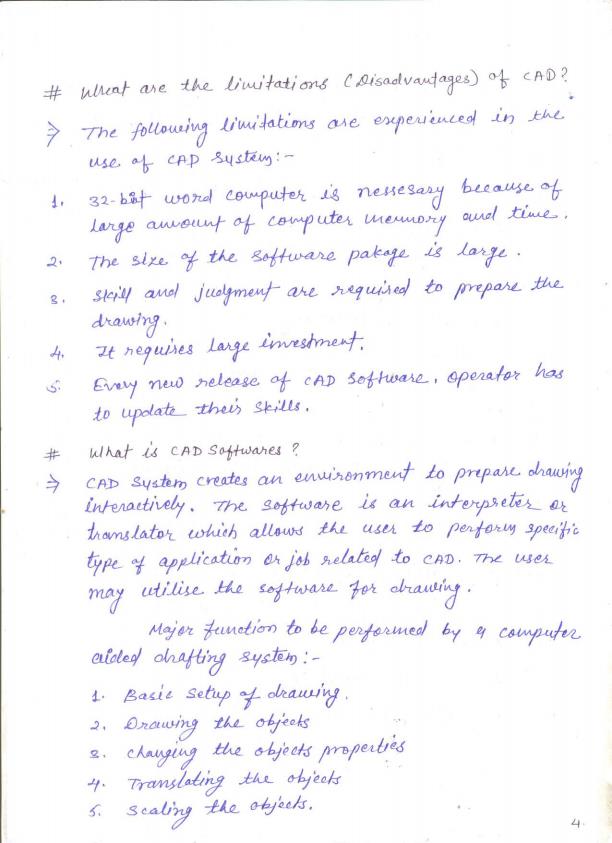 # What are the limitations (Disadvantages) of CAD?
⇒ The following limitations are experienced in the
use of CAD System:-
1. 32-bit word computer is nessesary because of
large amount of computer memmory and time.
2. The size of the software pakage is large.
3. Skill and judgment are required to prepare the
drawing.
4. It requires large investment.
5. Every new release of CAD software, operator has
to update their skills.
# What is CAD Softwares?
⇒ CAD System creates an environment to prepare drawing
interactively. The software is an interpreter or
translator which allows the user to perform specific
type of application or job related to CAD. The user
may utilise the software for drawing.
Major function to be performed by a computer
aided drafting system:-
1. Basic Setup of drawing.
2. Drawing the objects
3. Changing the objects properties
4. Translating the objects
5. Scaling the objects.
4.